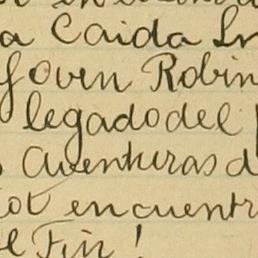 a Caida In
Joven Robin
legadodel
Aventuras d
tot encuentr
el Fin!